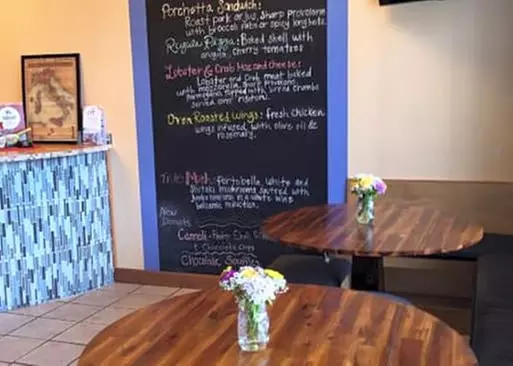 Porchetta Sandwich:
Roast pork au jus, sharp provolone
with broccoli rabe or spicy long hots.
Rugula Pizza: Baked shell with
arugula, cherry tomatoes
Lobster & Crab Mac and cheese:
Lobster and Crab meat baked
with mozzarella, sharp provolone,
parmegiana, topped with bread crumbs
served over rigatoni.
Oven Roasted Wings: fresh Chicken
wings infused with olive oil &
rosemary.
Portobello, white and
Shitaki mushrooms sauteed with
in a white wine
balsamic reduction.
New
Desserts:
Cannoli -
& Chocolate Chip
Chocolate Souffle